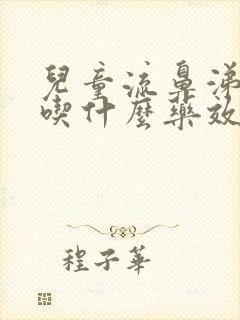 兒童流鼻涕
喫什麼藥效
程子華